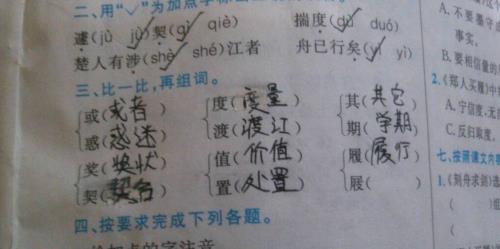 二、用“✓”为加点字
遽(jù jù)契(qì qiè) 揣度(dù duó)
楚人有涉(shè shé)江者 舟已行矣(yǐ yì)
三、比一比,再组词。
或(或者) 度(度量) 其(其它)
惑(惑迷) 渡(渡江) 期(学期)
奖(奖状) 值(价值) 履(履行)
契(契合) 置(处置) 屐( )
四、按要求完成下列各题。
给加点的字注音
A.不要墨守成
事实。
B.要相信量的
2.《郑人买履》中
A.宁信度,无自
C.反归取度。
七、按照课文内容
1.《刻舟求剑》选
( )组